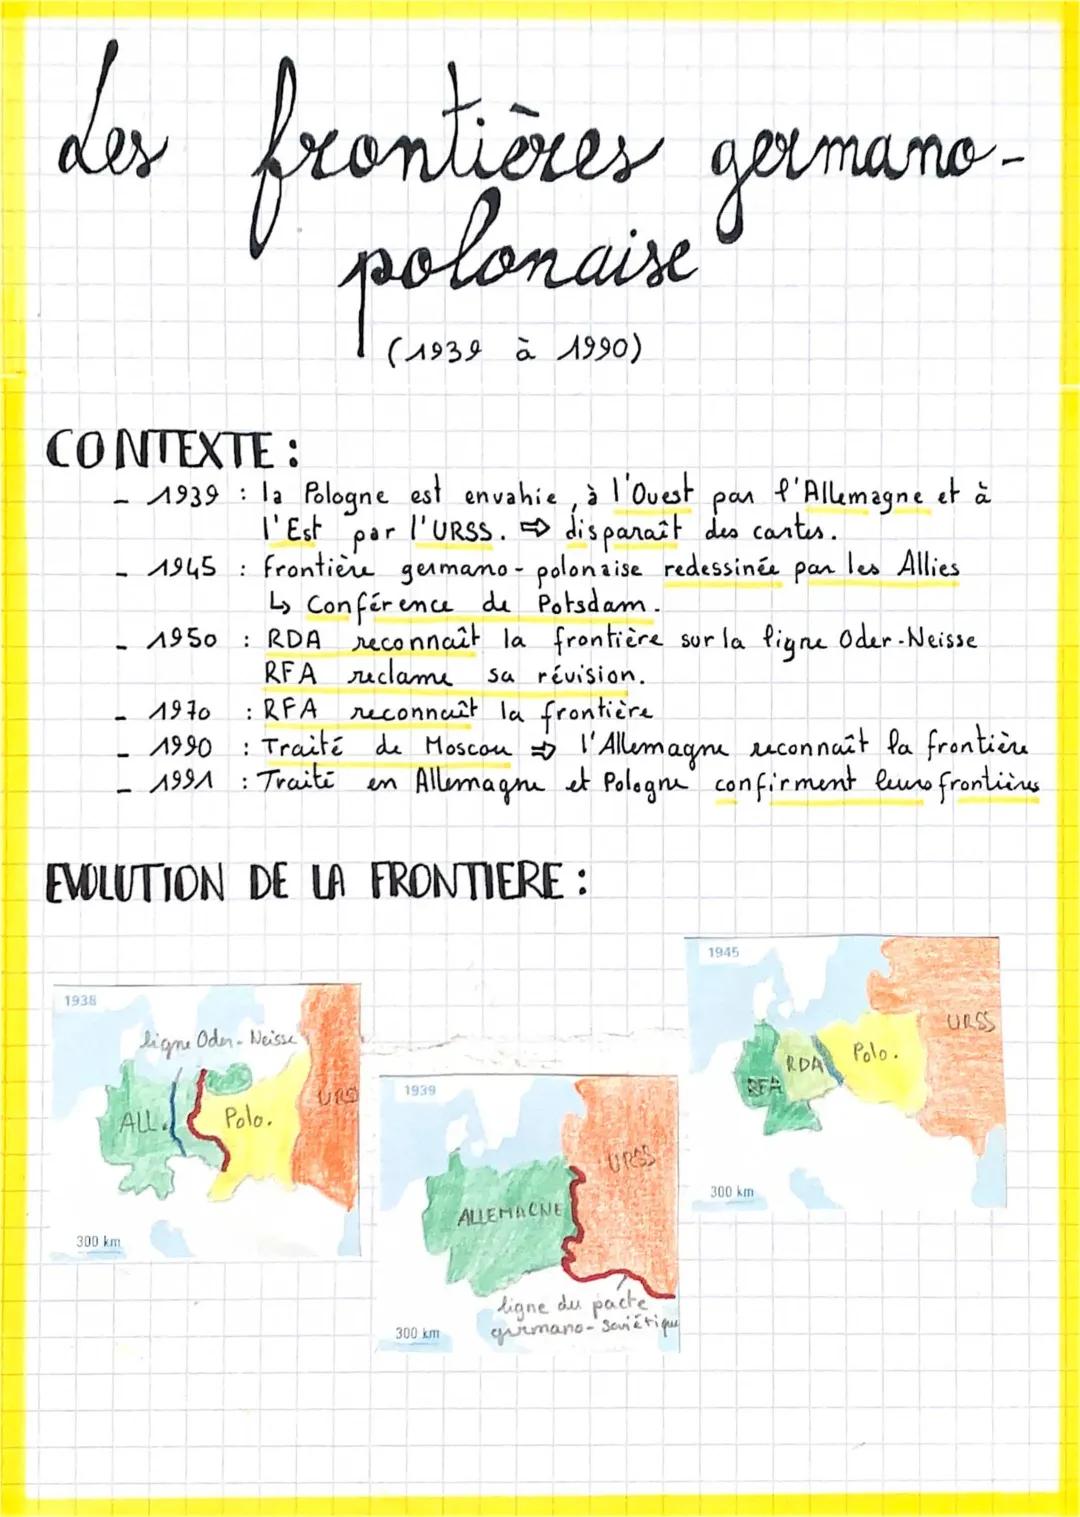 Les frontières germano-
polonaise
(1939 à 1990)
CONTEXTE :
- 1939 : la Pologne est envahie, à l'Ouest par l'Allemagne et à
l'Est par l'URSS. ⇒ disparaît des cartes.
- 1945 : Frontière germano-polonaise redessinée par les Allies
↳ Conférence de Potsdam.
- 1950 : RDA reconnaît la frontière sur la ligne Oder-Neisse
RFA reclame sa révision.
- 1970 : RFA reconnaît la frontière
- 1990 : Traité de Moscou ⇒ l'Allemagne reconnaît la frontière
- 1991 : Traité en Allemagne et Pologne confirment leurs frontières
EVOLUTION DE LA FRONTIERE :
1938
ligne Oder-Neisse
ALL.
Polo.
URSS
300 km
1939
URSS
ALLEMAGNE
ligne du pacte
germano-soviétique
300 km
1945
URSS
Polo.
RDA
RFA
300 km